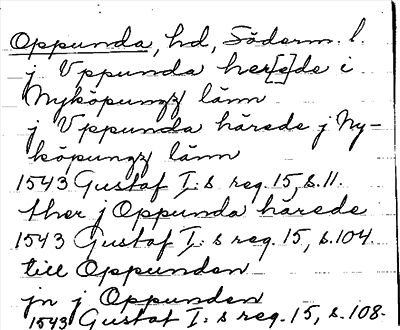 Oppunda, hd, Söderm. l.
j Vppunda her[e]de i
Nyköpungz länn
j Vppunda härede j Ny=
köpungz länn
1543 Gustaf I:s reg. 15, s. 11.
ther j Oppunda härede
1543 Gustaf I:s reg. 15, s. 104.
till Oppunden
jn j Oppunden
1543 Gustaf I:s reg. 15, s. 108.